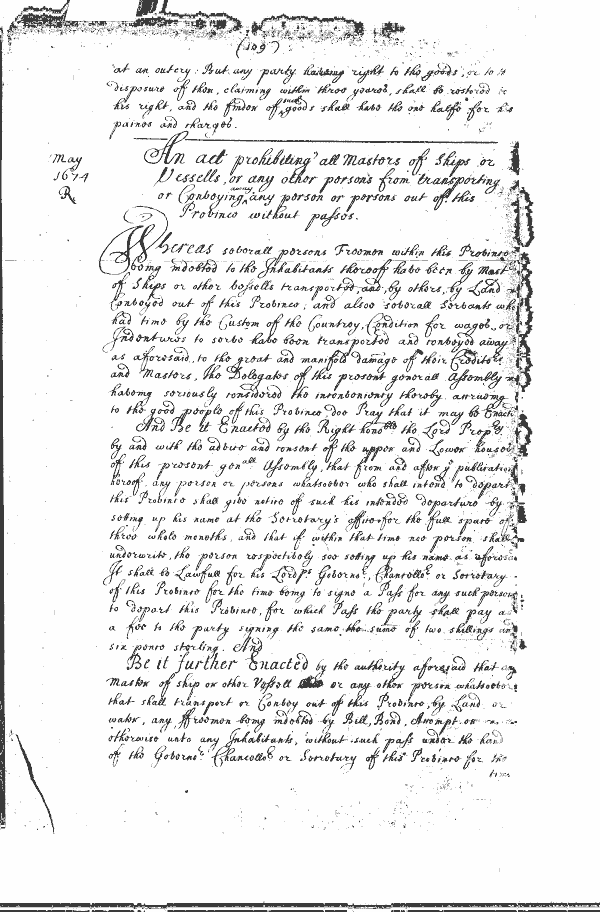 (109)
at an outcry: But any party haveing right to the goods, or to ye
disposure of them, claiming within three yeares, shall be restored to
his right, and the finder of such goods shall have the one halfe for his
paines and charges.
May
1674
R
An act prohibiting all Masters of Ships or
Vessells, or any other persons from transporting
or Conveying away any person or persons out of this
Province without passes.
Whereas severall persons Freemen within this Province
being indebted to the Inhabitants thereof have been by Mast
of Ships or other vessells transported, and, by others, by Land
Conveyed out of this Province; and alsoe severall Servants who
had time by the Custom of the Countrey, Condition for wages, or
Indentures to serve have been transported and conveyed away
as aforesaid, to the great and manifold damage of their Creditors
and Masters, the Delegates of this present generall Assembly
haveing seriously considered the inconveniency thereby accruing
to the good people of this Province, doe Pray that it may be Enact
And Be it Enacted by the Right honoble the Lord Propr
by and with the advice and consent of the upper and Lower houses
of this present genall Assembly, that from and after ye publication
hereof, any person or persons whatsoever who shall intend to depart
this Province shall give notice of such his intended departure by
setting up his name at the Secretary's office for the full space of
three whole moneths, and that if within that time noe person shall
underwrite the person respectively soe setting up his name as aforesaid
It shall be Lawfull for his Lordps Governor, Chancellor or Secretary
of this Province for the time being to signe a Pass for any such person
to depart this Province, for which Pass the party shall pay as
a fee to the party signing the same the sume of two shillings and
six pence sterling. And
Be it further Enacted by the authority aforesaid that any
Master of ship or other Vessell or any other person whatsoever
that shall transport or Convey out of this Province, by Land or
water, any Freeman being indebted by Bill, Bond, Accompt or
otherwise unto any Inhabitants, without such pass under the hand
of the Governor Chancellor or Secretary of this Province for the
time